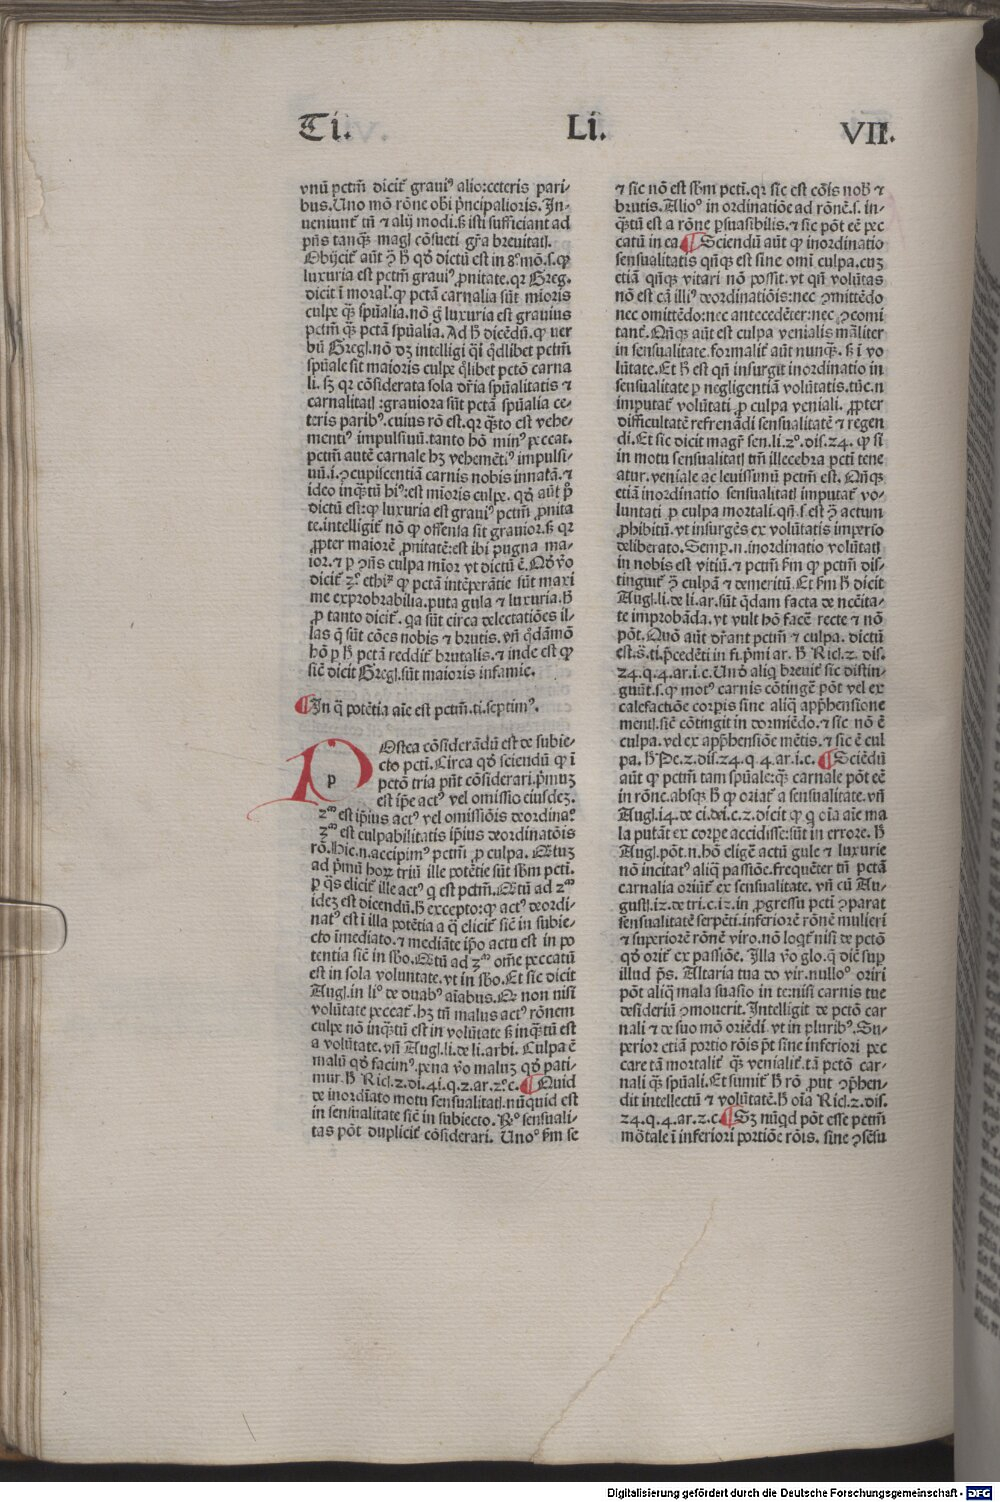 Ti. Li. VII.
vnū pctm̄ dicit᷑ graui⁹ alio:ceteris pari-
bus. Uno mō rōne obi p̄ncipalioris. In-
ueniunt᷑ tn̄ ⁊ alij modi. sꝫ isti sufficiant ad
pn̄s tanqꝫ magl cōsueti gr̄a breuitatl.
Obijcit᷑ aūt ꝯ̄ h̄ qd̓ dictū est in 8.° mō.s.ꝙ
luxuria est pctm̄ graui⁹ ꝓnitate. qꝛ Greg.
dicit ī moral᷑.ꝙ pctā carnalia sūt mīoris
culpe qꝫ spūalia. nō g̊ luxuria est grauius
pctm̄ qꝫ pctā spūalia. Ad h̄ dicēdū.ꝙ ver
bū Gregl. nō dꝫ intelligi q̇i qd̓libet pctm̄
spūale sit maioris culpe ql̓ibet pctō carna
li. sꝫ qꝛ cōsiderata sola dr̄ia spūalitatis ⁊
carnalitatl :grauiora sūt pctā spūalia ce-
teris parib⁹. cuius rō est. qꝛ qꝫto est vehe-
menti⁹ impulsiuū. tanto hō min⁹ peccat.
pctm̄ autē carnale hꝫ vehemēti⁹ impulsi-
uū.i.ꝯcupiscentiā carnis nobis innatā. ⁊
ideo inqꝫtū hi⁹:est mīoris culpe. qd̓ aūt p̊
dictū est:ꝙ luxuria est graui⁹ pctm̄ ꝓnita
te. intelligit᷑ nō ꝙ offensa sit grauior. sꝫ qꝛ
ꝓpter maiorē ꝓnitatē:est ibi pugna ma-
ior. ⁊ p ꝯn̄s culpa mīor vt dictū ē. Qd̓ v̊o
dicit᷑ .2.° ethi᷑ ꝙ pctā intēperātie sūt maxi
me exprobrabilia. puta gula ⁊ luxuria. h̄
ꝓ tanto dicit᷑. qa sūt circa delectatiōes il-
las q̄ sūt cōes nobis ⁊ brutis. vn̄ qd̓āmō
hō p h̄ pctā reddit᷑ brutalis. ⁊ inde est ꝙ
sic̄ dicit Gregl. sūt maioris infamie.
¶In q̄ potētia aīe est pctm̄. ti. septim⁹.
p
Ostea cōsiderādū est de subie-
cto pcti. Circa qd̓ sciendū ꝙ ī
pctō tria pn̄t cōsiderari. p̄muꝫ
est ip̄e act⁹ vel omissio eiusdeꝫ.
2ᵐ est ip̄ius act⁹ vel omissiōis deordina°
3ᵐ est culpabilitatis ip̄ius deordinatōis
rō. Hic.n. accipim⁹ pctm̄ ꝓ culpa. Qtuꝫ
ad p̄mū hoꝝ triū ille potētie sūt sb̄m pcti.
p q̄s elicit᷑ ille act⁹ q est pctm̄. Qtū ad 2ᵐ
ideꝫ est dicendū. h̄ excepto:ꝙ act⁹ deordi-
nat⁹ est ī illa potētia a q̄ elicit᷑ sic̄ in subie-
cto īmediato. ⁊ mediāte ip̄o actu est in po
tentia sic̄ in sb̄o. Qtū ad 3ᵐ om̄e peccatū
est in sola voluntate. vt in sb̄o. Et sic dicit
Augl. in li° de duab⁹ aīabus. Qꝛ non nisi
volūtate peccat᷑. hꝫ tn̄ malus act⁹ rōnem
culpe nō inqꝫtū est in volūtate sꝫ inqꝫtū est
a volūtate. vn̄ Augl. li. de li. arbi. Culpa ē
malū qd̓ facim⁹. pena v̊o maluꝫ qd̓ pati-
mur. h̄ Ricl. 2. di. 41. q. 2. ar. 2.° c. ¶Quid
de inordīato motu sensualitatl. nūquid est
in sensualitate sic̄ in subiecto. R.° sensuali-
tas pōt duplicit᷑ cōsiderari. Uno° ẜm se
⁊ sic nō est sb̄m pcti. qꝛ sic est cōis nob̄ ⁊
brutis. Alio° in ordinatiōe ad rōnē.s. in-
qꝫtū est a rōne ꝑsuasibilis. ⁊ sic pōt eē pec
catū in ea ¶Sciendū aūt ꝙ inordinatio
sensualitatis qn̄qꝫ est sine omī culpa. cuꝫ
etiā qn̄qꝫ vitari nō possit. vt qn̄ volūtas
nō est cā illi⁹ deordinatiōis:nec ꝯmittēdo
nec omittēdo:nec antecedēter:nec ꝯcomi
tant᷑. Qn̄qꝫ aūt est culpa venialis mal̄iter
in sensualitate. formalit᷑ aūt nunqꝫ. sꝫ ī vo
lūtate. Et h̄ est qn̄ insurgit inordinatio in
sensualitate p negligentiā volūtatis. tūc.n
imputat᷑ volūtati ꝓ culpa veniali. ꝓpter
difficultatē refrenādi sensualitatē ⁊ regen
di. Et sic dicit magr̄ sen. li. 2.° dis. 24. ꝙ si
in motu sensualitatl tm̄ illecebra pcti tene
atur. veniale ac leuissimū pctm̄ est. Qn̄qꝫ
etiā inordinatio sensualitatl imputat᷑ vo-
luntati ꝓ culpa mortali. qn̄.s. est ꝯ̄ actum
ꝓhibitū. vt insurgēs ex volūtatis imperio
deliberato. Semp.n. inordinatio volūtatl
in nobis est vitiū. ⁊ pctm̄ ẜm ꝙ pctm̄ dis-
tinguit᷑ ꝯ̄ culpā ⁊ demeritū. Et ẜm h̄ dicit
Augl. li. de li. ar. sūt q̄dam facta de nēcita-
te improbāda. vt vult hō facē recte ⁊ nō
pōt. Quō aūt dr̄ant pctm̄ ⁊ culpa. dictū
est. s̄. ti. p̄cedēti in fi. p̄mi ar. h̄ Ricl. 2. dis.
24. q. 4. ar. i. c. Und̓ aliq breuit᷑ sic distin-
guūt. s. ꝙ mot⁹ carnis cōtingē pōt vel ex
calefactiōe corpis sine aliq apphensione
mentl. sic̄ cōtingit in dormiēdo. ⁊ sic nō ē
culpa. vel ex apphēsiōe mētis. ⁊ sic ē cul
pa. h̄ Pe. 2. dis. 24. q. 4. ar. i. c. ¶Sciēdū
aūt ꝙ pctm̄ tam spūale:qꝫ carnale pōt eē
in rōne. absqꝫ h̄ ꝙ oriat᷑ a sensualitate. vn̄
Augl. i4. de ci. dei. c. 2. dicit ꝙ q oīa aīe ma
la putāt ex corpe accidisse:sūt in errore. h̄
Augl. pōt.n. hō eligē actū gule ⁊ luxurie
nō incitat᷑ aliq passiōe. frequēter tn̄ pctā
carnalia oriūt᷑ ex sensualitate. vn̄ cū Au-
gustl. i2. de tri. c. i2. in ꝓgressu pcti ꝯparat
sensualitatē serpēti. inferiorē rōnē mulieri
⁊ superiorē rōnē viro. nō loqt᷑ nisi de pctō
qd̓ orit᷑ ex passiōe. Illa v̊o glo. q̄ dic̄ sup
illud ps̄. Altaria tua do vir. nullo° oriri
pōt aliq mala suasio in te:nisi carnis tue
desideriū ꝯmouerit. Intelligit de pctō car
nali ⁊ de suo mō oriēdi. vt in plurib⁹. Su-
perior etiā portio rōis pōt sine inferiori pec
care tā mortalit᷑ qꝫ venialit᷑. tā pctō car-
nali qꝫ spūali. Et sumit᷑ h̄ rō ꝓut ꝯp̄hen-
dit intellectū ⁊ volūtatē. h̄ oīa Ricl. 2. dis.
24. q. 4. ar. 2. c. ¶Sꝫ nūqd pōt esse pctm̄
mōtale ī inferiori portiōe rōis. sine ꝯsēsu
Digitalisierung gefördert durch die Deutsche Forschungsgemeinschaft - DFG